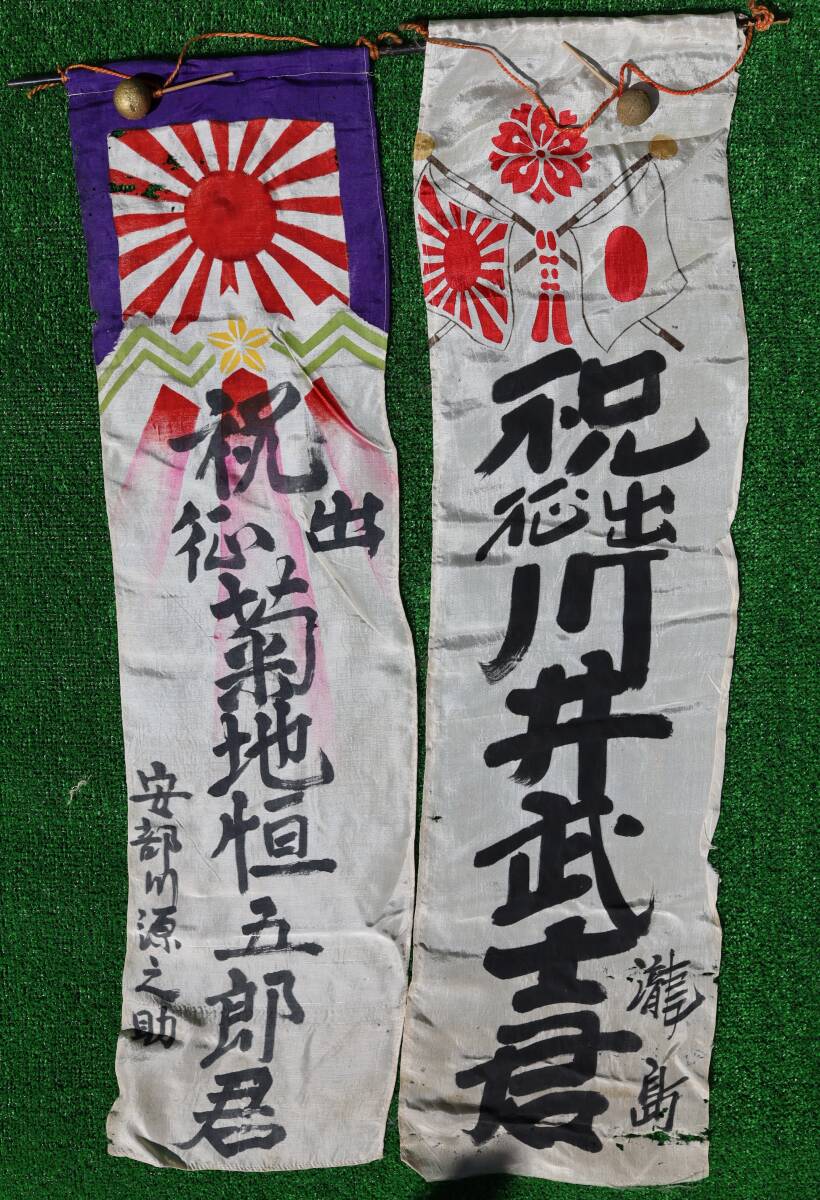 祝出征川井武士君
瀧島
祝出征菊地恒五郎君
安部川源之助